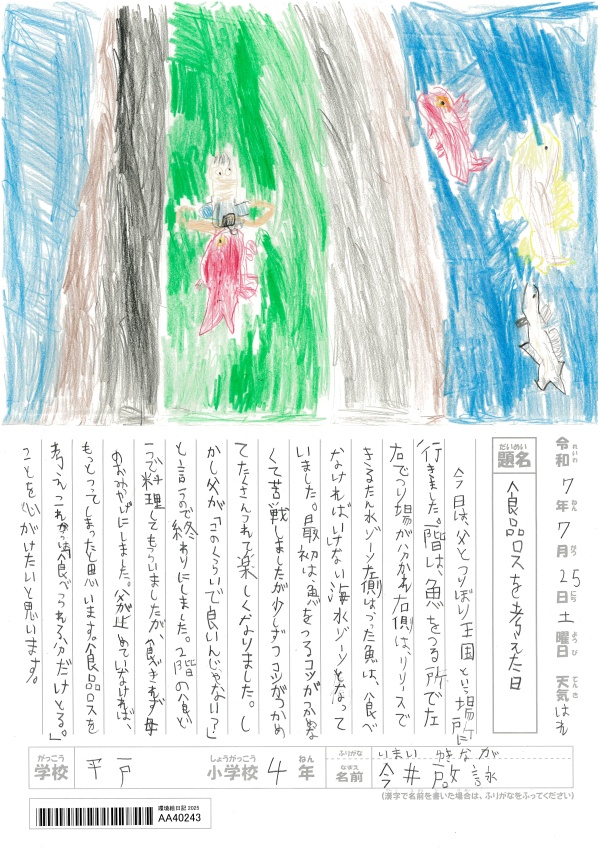 令和7年7月25日土曜日 天気はれ
題名 食品ロスを考えた日
今日は、父とつりぼり王国という場所に
行きました。1階は、魚をつる所で左
右でつり場が分かれ右側は、リリースで
きるたん水ゾーン左側は、つった魚は、食べ
なければいけない海水ゾーンとなって
いました。最初は、魚をつるコツがつかめな
くて苦戦しましたが少しずつコツがつかめ
てたくさんつれて楽しくなりました。し
かし父が、「このくらいで良いんじゃない？」
と言うので終わりにしました。2階の食ど
うで料理してもらいましたが、食べきれず母
のおみやげにしました。父が止めていなければ、
もっとつってしまったと思います。食品ロスを
考え「これからは食べられる分だけとる。」
ことを心がけたいと思います。
がっこう しょうがっこう ねん ふりがな いまい ゆきなが
学校 平戸 小学校 4年 なまえ 名前 今井 啓詠
(漢字で名前を書いた場合は、ふりがなをふってください)
環境絵日記 2025
AA40243